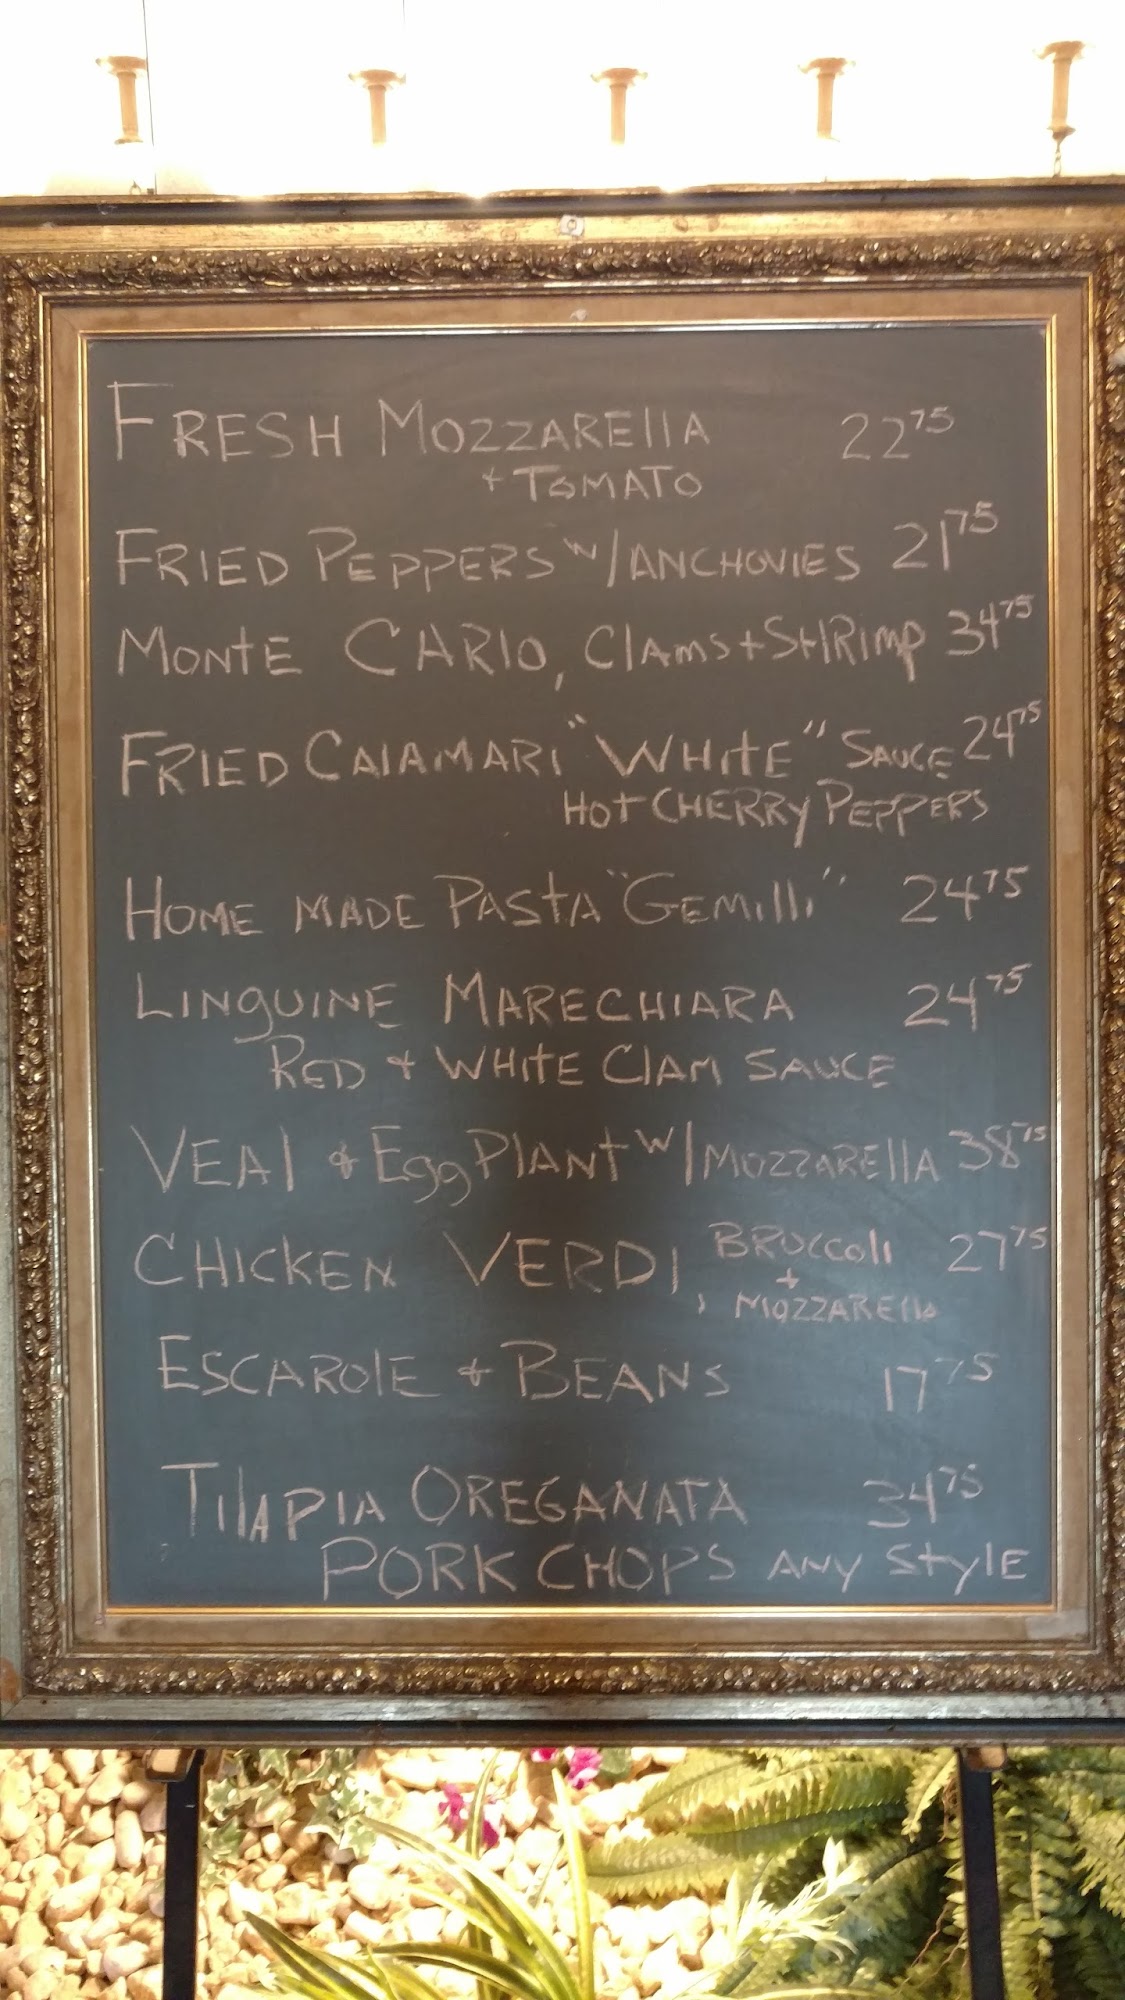 FRESH MOZZAREllA 22 75
+ TOMATO
FRIED PEPPERS W/ANCHOVIES 21 75
MONTE CARlO, Clams + SHRimp 34 75
FRIED CAlAMARI "WHITE" SAUCE 24 75
HOT CHERRY PEPPERS
HOME MADE PASTA "GEMIlli" 24 75
LINGUINE MARECHIARA 24 75
RED + WHITE ClAM SAUCE
VEAl + EggPlANT W/MOZZAREllA 38 75
CHICKEN VERDI, BROCColi + MOZZAREllA 27 75
ESCAROlE + BEANS 17 75
TIlAPIA OREGANATA 34 75
PORK CHOPS ANY StylE